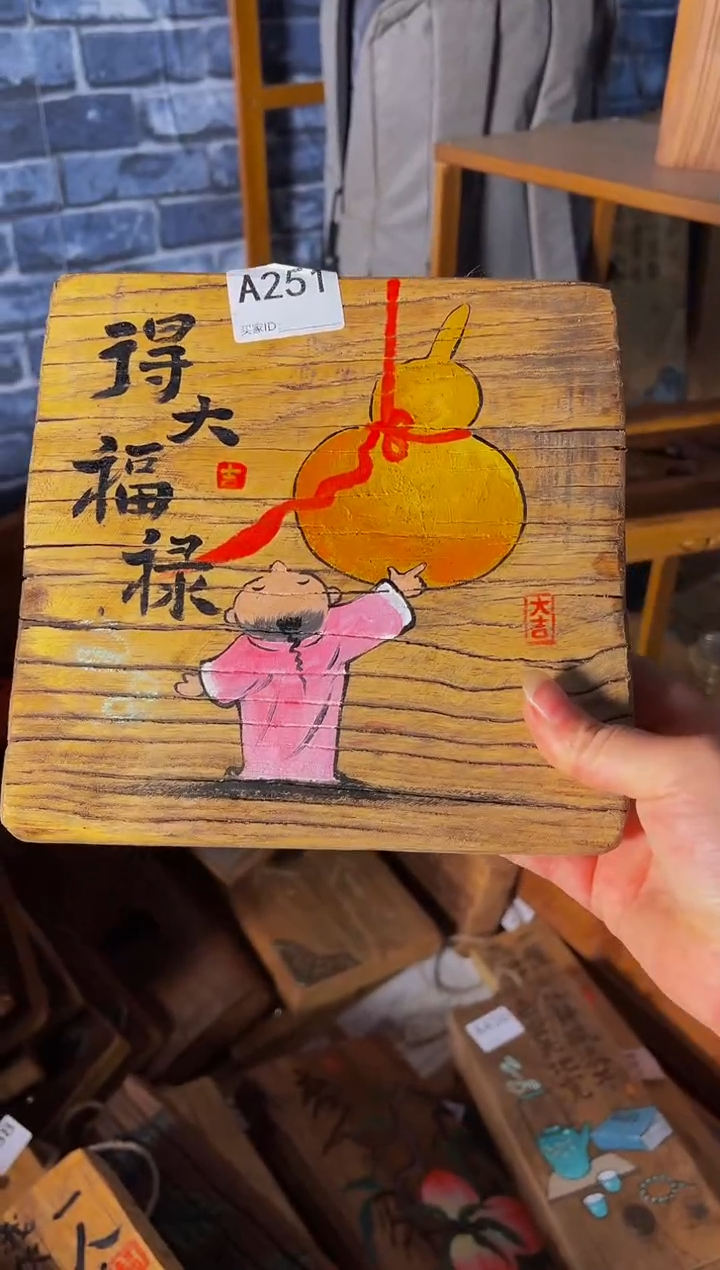 A251
买家ID:
得
大
福
禄
吉
大吉